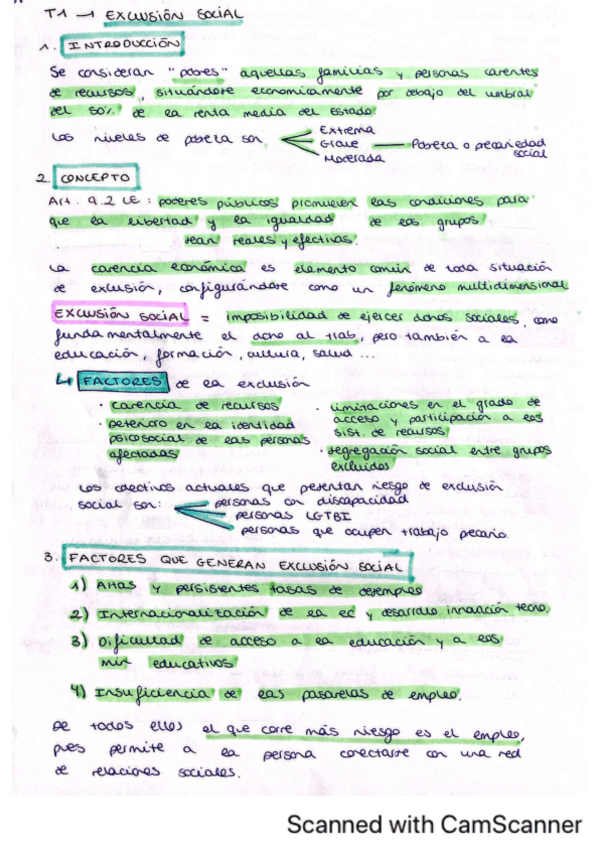 T1 → EXCLUSIÓN SOCIAL
1. INTRODUCCIÓN
Se consideran "pobres" aquellas familias y personas carentes
de recursos, situándose económicamente por debajo del umbral
del 50% de la renta media del Estado.
Los niveles de pobreza son
Extrema
Grave — Pobreza o precariedad social
Moderada
2. CONCEPTO
Art. 9.2 CE: poderes públicos promueven las condiciones para
que la libertad y la igualdad de los grupos
sean reales y efectivas.
La carencia económica es elemento común de toda situación
de exclusión, configurándose como un fenómeno multidimensional
EXCLUSIÓN SOCIAL = imposibilidad de ejercer dchos sociales, como
fundamentalmente el dcho al trab, pero también a la
educación, formación, cultura, salud ...
↳ FACTORES de la exclusión
· carencia de recursos
· deterioro en la identidad
psicosocial de las personas
afectadas
· limitaciones en el grado de
acceso y participación a los
sist. de recursos
· segregación social entre grupos
excluidos
Los colectivos actuales que presentan riesgo de exclusión
social son:
personas con discapacidad
personas LGTBI
personas que ocupen trabajo precario.
3. FACTORES QUE GENERAN EXCLUSIÓN SOCIAL
1) Altas y persistentes tasas de desempleo
2) Internacionalización de la ec y desarrollo innovación tecno.
3) Dificultad de acceso a la educación y a los
min educativos
4) Insuficiencia de las pasarelas de empleo.
De todos ellos el que corre más riesgo es el empleo,
pues permite a la persona conectarse con una red
de relaciones sociales.
Scanned with CamScanner